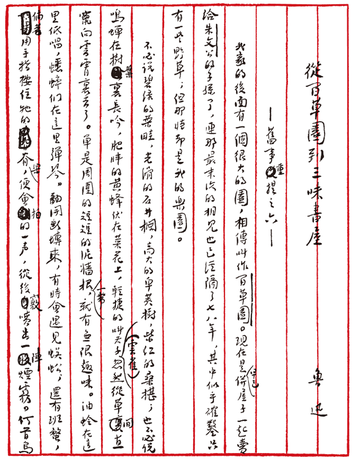 從百草園到三味書屋
——舊事重提之六——
魯迅
我家的後面有一個很大的園，相傳叫作百草園。現在是早已併屋子一起賣
給朱文公的子孫了，連那最末次的相見也已經隔了七八年，其中似乎確鑿只
有一些野草；但那時卻是我的樂園。
不必說碧綠的菜畦，光滑的石井欄，高大的皂莢樹，紫紅的桑椹；也不必說
鳴蟬在樹葉裏長吟，肥胖的黃蜂伏在菜花上，輕捷的叫天子（雲雀）忽然從草間直
竄向雲霄裏去了。單是周圍的短短的泥牆根一帶，就有無限趣味。油蛉在這
里低唱，蟋蟀們在這里彈琴。翻開斷磚來，有時會遇見蜈蚣；還有斑蝥，
倘若用手指按住牠的脊梁，便會拍的一声，從後竅噴出一陣煙霧。何首烏